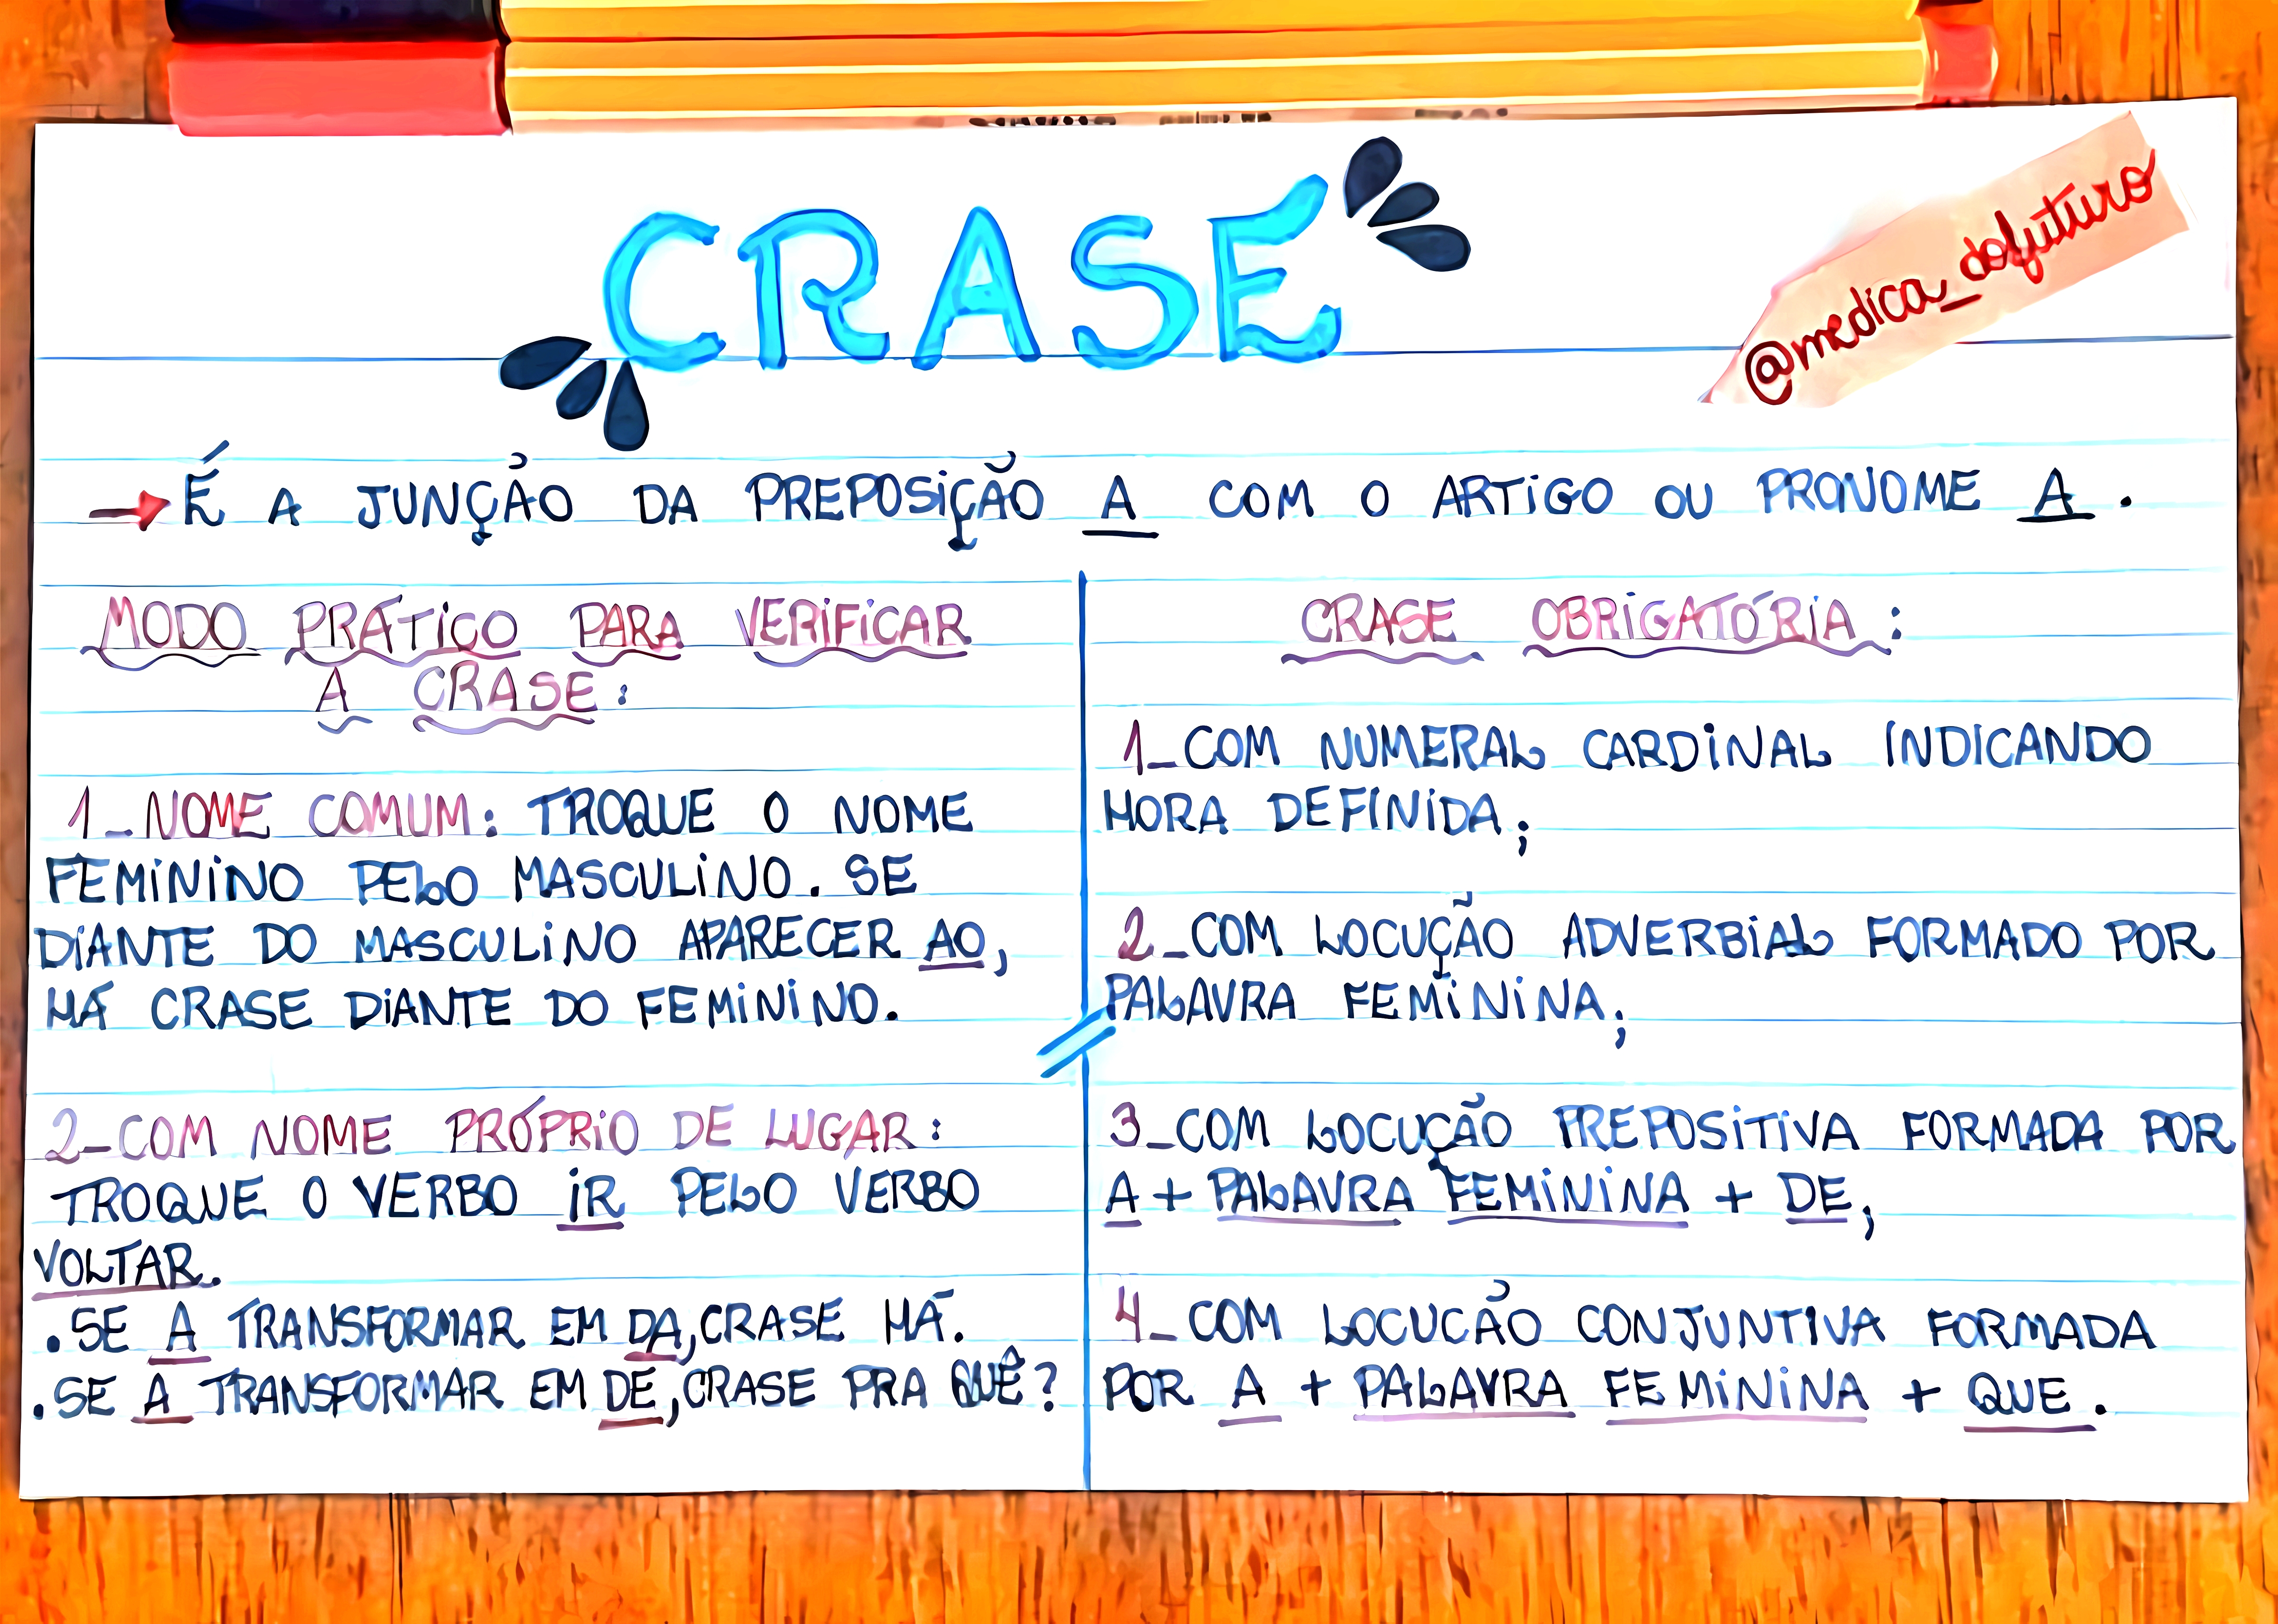 CRASE
@medica_dofuturo
É A JUNÇÃO DA PREPOSIÇÃO A COM O ARTIGO OU PRONOME A.
MODO PRÁTICO PARA VERIFICAR
A CRASE:
1_NOME COMUM: TROQUE O NOME
FEMININO PELO MASCULINO. SE
DIANTE DO MASCULINO APARECER AO,
HÁ CRASE DIANTE DO FEMININO.
2_COM NOME PRÓPRIO DE LUGAR:
TROQUE O VERBO IR PELO VERBO
VOLTAR.
.SE A TRANSFORMAR EM DA, CRASE HÁ.
.SE A TRANSFORMAR EM DE, CRASE PRA QUÊ?
CRASE OBRIGATÓRIA:
1_COM NUMERAL CARDINAL INDICANDO
HORA DEFINIDA;
2_COM LOCUÇÃO ADVERBIAL FORMADO POR
PALAVRA FEMININA;
3_COM LOCUÇÃO PREPOSITIVA FORMADA POR
A + PALAVRA FEMININA + DE,
4_COM LOCUCÃO CONJUNTIVA FORMADA
POR A + PALAVRA FEMININA + QUE.